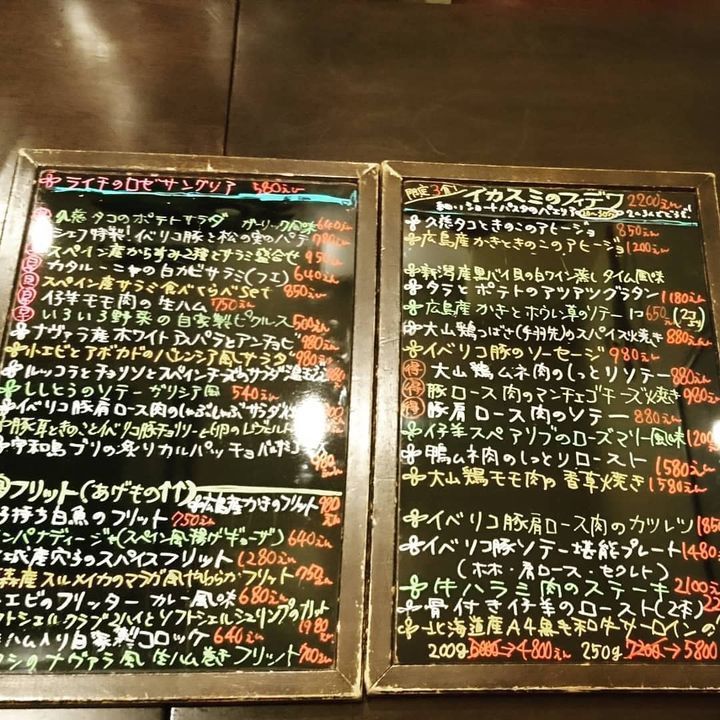 ライチのロゼサングリア 580えん
久慈タコのポテトサラダ ガーリック風味 640えん
シェフ特製!イベリコ豚と松の実のパテ 780えん
スペイン産からすみ2種とサラミ盛合せ 950えん
カタルーニャの白カビサラミ(フエ) 640えん
スペイン産サラミ食べくらべSet 850えん
仔羊モモ肉の生ハム 750えん
いろいろ野菜の自家製ピクルス 500えん
ナヴァラ産ホワイトアスパラとアンチョビ 980えん
小エビとアボカドのバレンシア風サラダ 980えん
ルッコラとチョリソとスペインチーズのサラダ
ししとうのソテー ガリシア風 540えん
イベリコ豚肩ロース肉のしゃぶしゃぶサラダ
豚耳ときのことイベリコ豚チョリソーと卵の
宇和島ブリの炙りカルパッチョ 980えん
フリット(あげもの!!)
広島産かきのフリット 980えん
子持ち白魚のフリット 750えん
エンパナディージャ(スペイン風揚げギョーザ) 640えん
産穴子のスパイスフリット 1280えん
森産スルメイカのマラガ風やわらかフリット 750えん
エビのフリッター カレー風味 680えん
ソフトシェルクラブ2ハイとソフトシェルシュリンプのフリット 1980えん
生ハム入り自家製コロッケ 640えん
シのナヴァラ風 生ハム巻きフリット 700えん
限定3食 イカスミのフィデワ 2200えん
細いショートパスタのパエリア
久慈タコときのこのアヒージョ 850えん
広島産かきときのこのアヒージョ 1200えん
新潟産黒バイ貝の白ワイン蒸し タイム風味
タラとポテトのアツアツグラタン 1180えん
広島産かきとホウレン草のソテー 1コ650えん(2コより)
大山鶏つばさ(手羽先)のスパイス焼き 880えん
イベリコ豚のソーセージ 980えん
得 大山鶏ムネ肉のしっとりソテー 880えん
得 豚ロース肉のマンチェゴチーズ焼き 980えん
得 豚肩ロース肉のソテー 880えん
仔羊スペアリブのローズマリー風味 1200
鴨ムネ肉のしっとりロースト 1580えん
大山鶏モモ肉の香草焼き 1580えん
イベリコ豚肩ロース肉のカツレツ 1850
イベリコ豚ソテー堪能プレート 1480えん
(ホホ・肩ロース・セクレト)
牛ハラミ肉のステーキ 2100えん
骨付き仔羊のロースト(2本)
北海道産A4黒毛和牛サーロインの
200g 6000→4800えん 250g 7200→5800